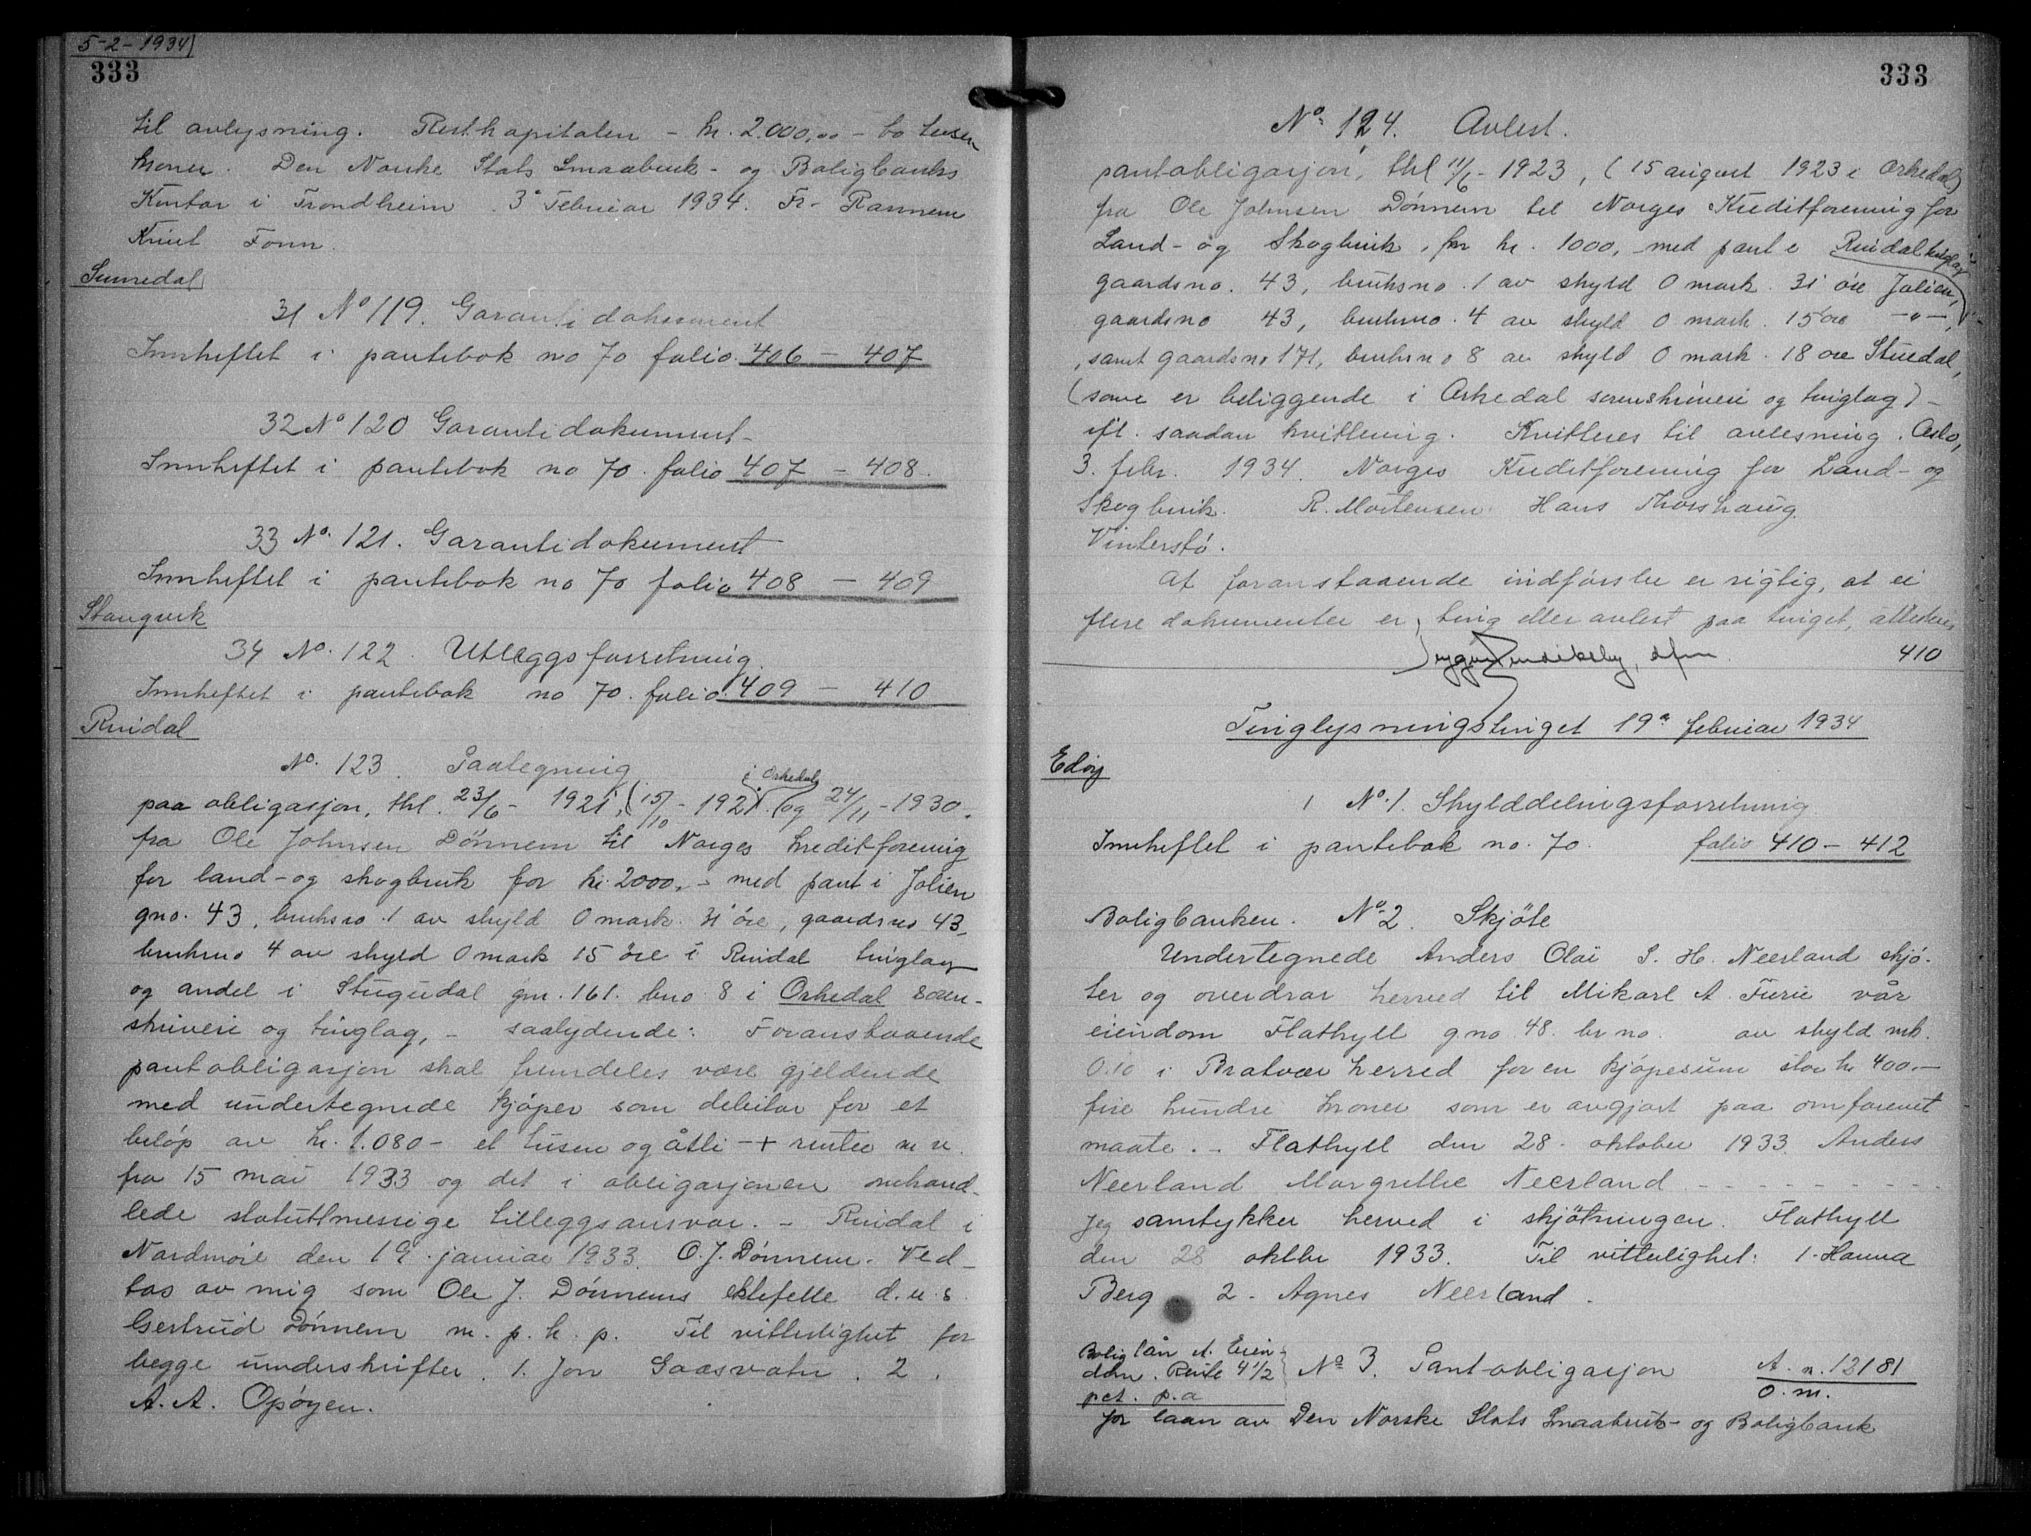 5-2-1934
333
til avlysning. Restkapitalen - kr. 2.000,00 - to tusen
kroner. Den Norske Stats Smaabruk- og Boligbanks
Kontor i Trondheim 3' Februar 1934. Fr. Rannem
Knut Fonn.
Sunndal
31 No 119. Garantidokument
Innheftet i pantebok no 70 folio 406 - 407
32 No 120 Garantidokument
Innheftet i pantebok no 70. folio 407 - 408.
33 No. 121. Garantidokument
Innheftet i pantebok no 70 folio 408 - 409
Stangvik
34 No. 122. Utleggsforretning.
Innheftet i pantebok no 70. folio 409 - 410
Rindal
No. 123. Paategning
i Orkedal
paa obligasjon, thl. 23/6 - 1921, (15/10 - 1921. og 24/11 - 1930.
fra Ole Johnsen Dønnem til Norges kreditforening
for land- og skogbruk for kr. 2000,- med pant i Jolien
gno. 43, bruksno. 1 av skyld 0 mark 31 øre, gaardsno 43,
bruksno 4 av skyld 0 mark 15 øre i Rindal tinglag
og andel i Stugudal gno. 161. bno 8 i Orkedal soren-
skriveri og tinglag, - saalydende: Foranstaaende
pantobligasjon skal fremdeles være gjeldende
med undertegnede kjøper som debitor for et
beløp av kr. 1.080 - et tusen og åtti - + renter m. v.
fra 15 mai 1933 og det i obligasjonen omhand-
lede statuttmessige tilleggsansvar. - Rindal i
Nordmøre den 19. januar 1933. O. J. Dønnem. Ved-
tas av mig som Ole J. Dønnems ektefelle d. u. s
Gertrud Dønnem m. p. h. p. Til vitterlighet for
begge underskrifter. 1. Jon Gaasvatn. 2.
A. A. Opøyen.
333
No. 124. Avlest.
pantobligasjon, thl 11/6 - 1923, (15 august 1923 i Orkedal)
fra Ole Johnsen Dønnem til Norges Kreditforening for
Land- og Skogbruk, for kr. 1000,- med pant i Rindal tinglag
gaardsno. 43, bruksno. 1 av skyld 0 mark. 31 øre Jolien,
gaardsno 43, bruksno. 4 av skyld 0 mark. 15 øre -"-,
samt gaardsno 171, bruksno 8 av skyld 0 mark. 18 øre Stuedal,
(som er beliggende i Orkedal sorenskriveri og tinglag) -
ifl. saadan kvittering. Kvitteres til avlesning. Oslo,
3. febr. 1934. Norges Kreditforening for Land- og
Skogbruk. R. Mortensen Hans Thorshaug
Vinterstø.
At foranstaaende indførsler er rigtig, at ei
flere dokumenter er ting eller avlest paa tinget, attesteres
410
Tinglysningstinget 19. februar 1934
Edøy
1 No. 1. Skylddelingsforretning
Innheftet i pantebok no. 70. folio 410 - 412
Boligbanken. No. 2. Skjøte
Undertegnede Anders Olai S. H. Neerland skjø-
ter og overdrar herved til Mikael A. Furu vår
eiendom Flathyll g.no. 48. br no. av skyld mk.
0.10 i Bratvær herred for en kjøpesum stor kr 400.-
fire hundre kroner som er avgjort paa omforenet
maate. - Flathyll den 28. oktober 1933. Anders
Neerland Margrethe Neerland - - - - - - - - -
Jeg samtykker herved i skjøtningen. Flathyll
den 28 oktbr 1933. Til vitterlighet: 1. Hanna
Berg 2. Agnes Neerland.
Bolig lån A. Eien-
dom. Rente 4 1/2
pct. p.a
No 3. Pantobligasjon A. n. 12181
O. m.
for laan av Den Norske Stats Smaabruk- og Boligbank